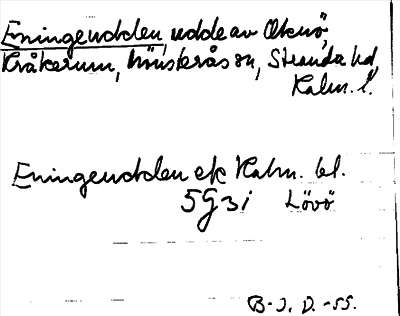 Eningeudden, udde av Oknö,
Kråkerum, Mönsterås sn, Stranda hd,
Kalm. l.
Eningeudden ek Kalm. bl.
5G3i Lövö
B-J. D. -55.